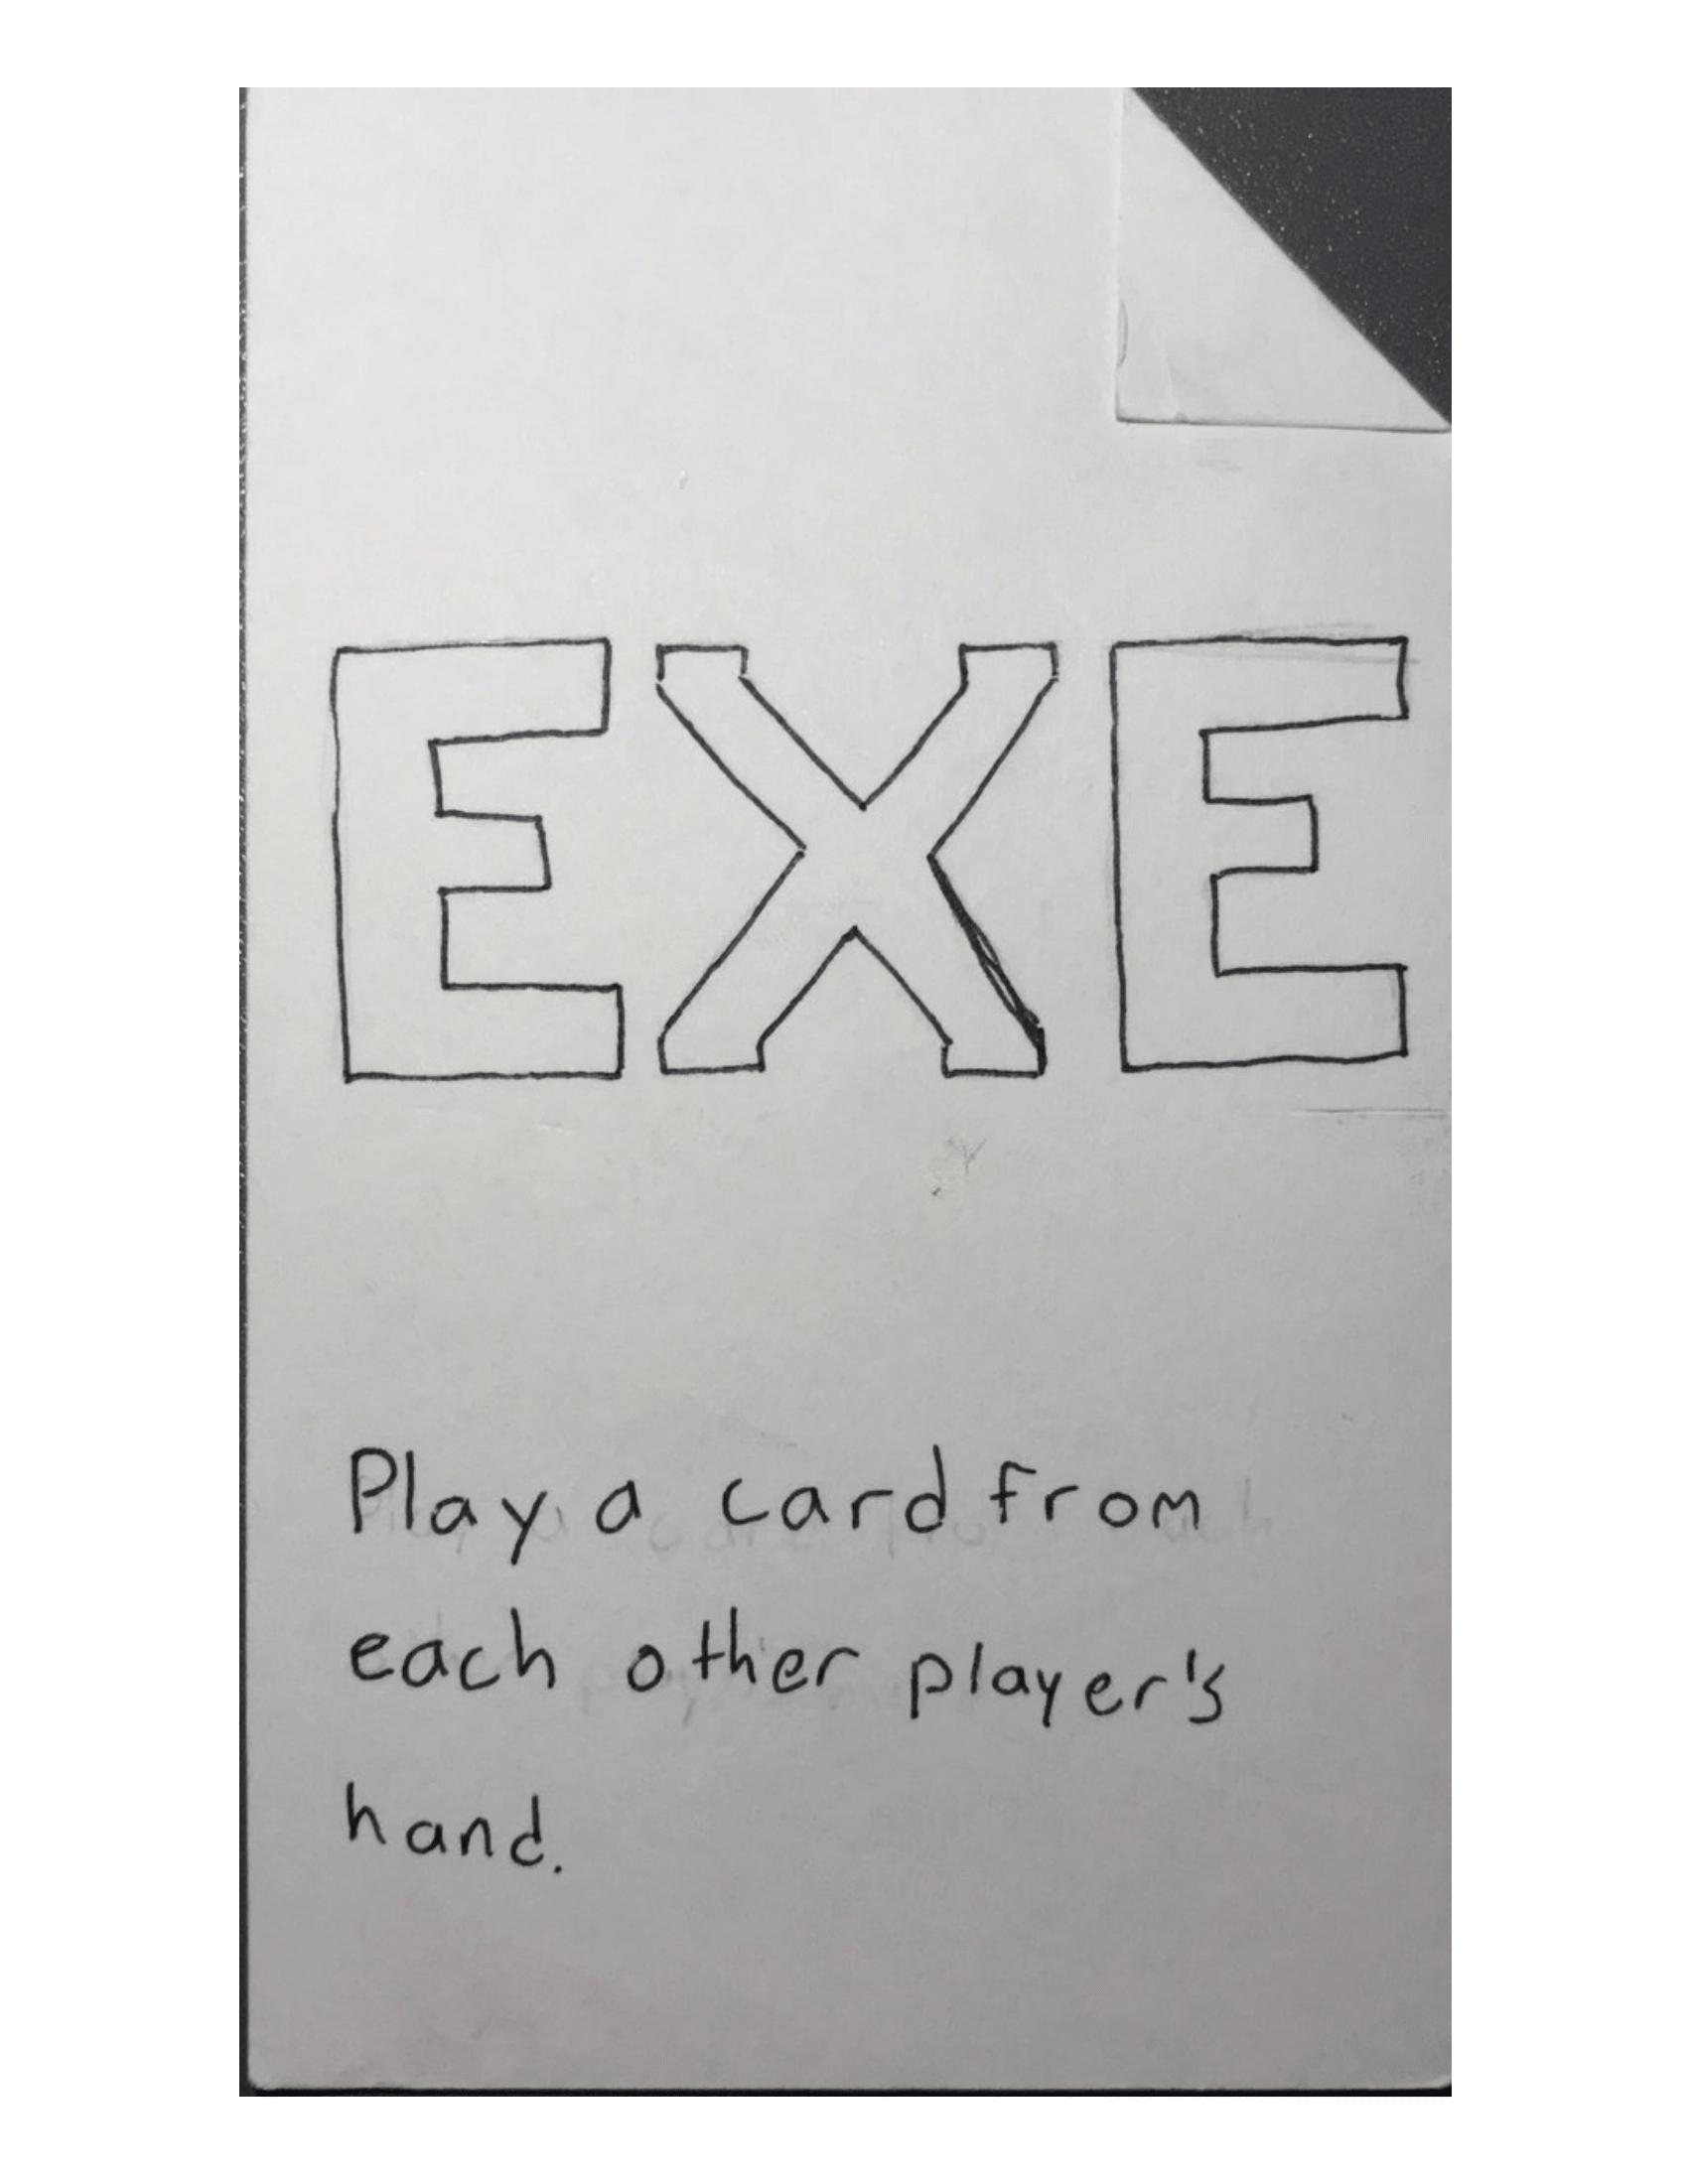 EXE
Play a card from
each other player's
hand.